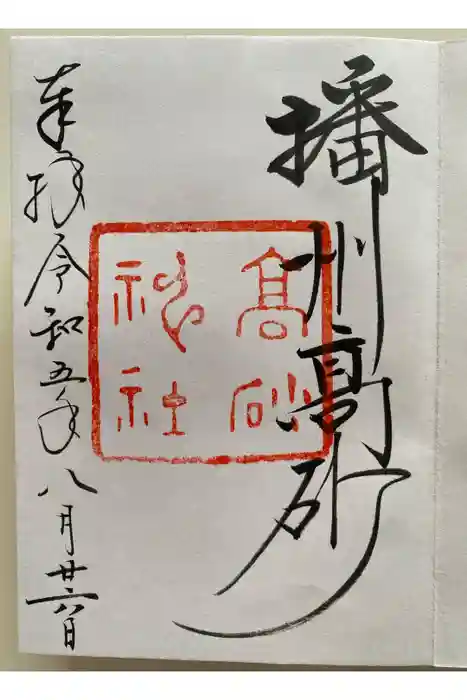 播州高砂
高砂
神社
奉拝令和五年八月廿六日